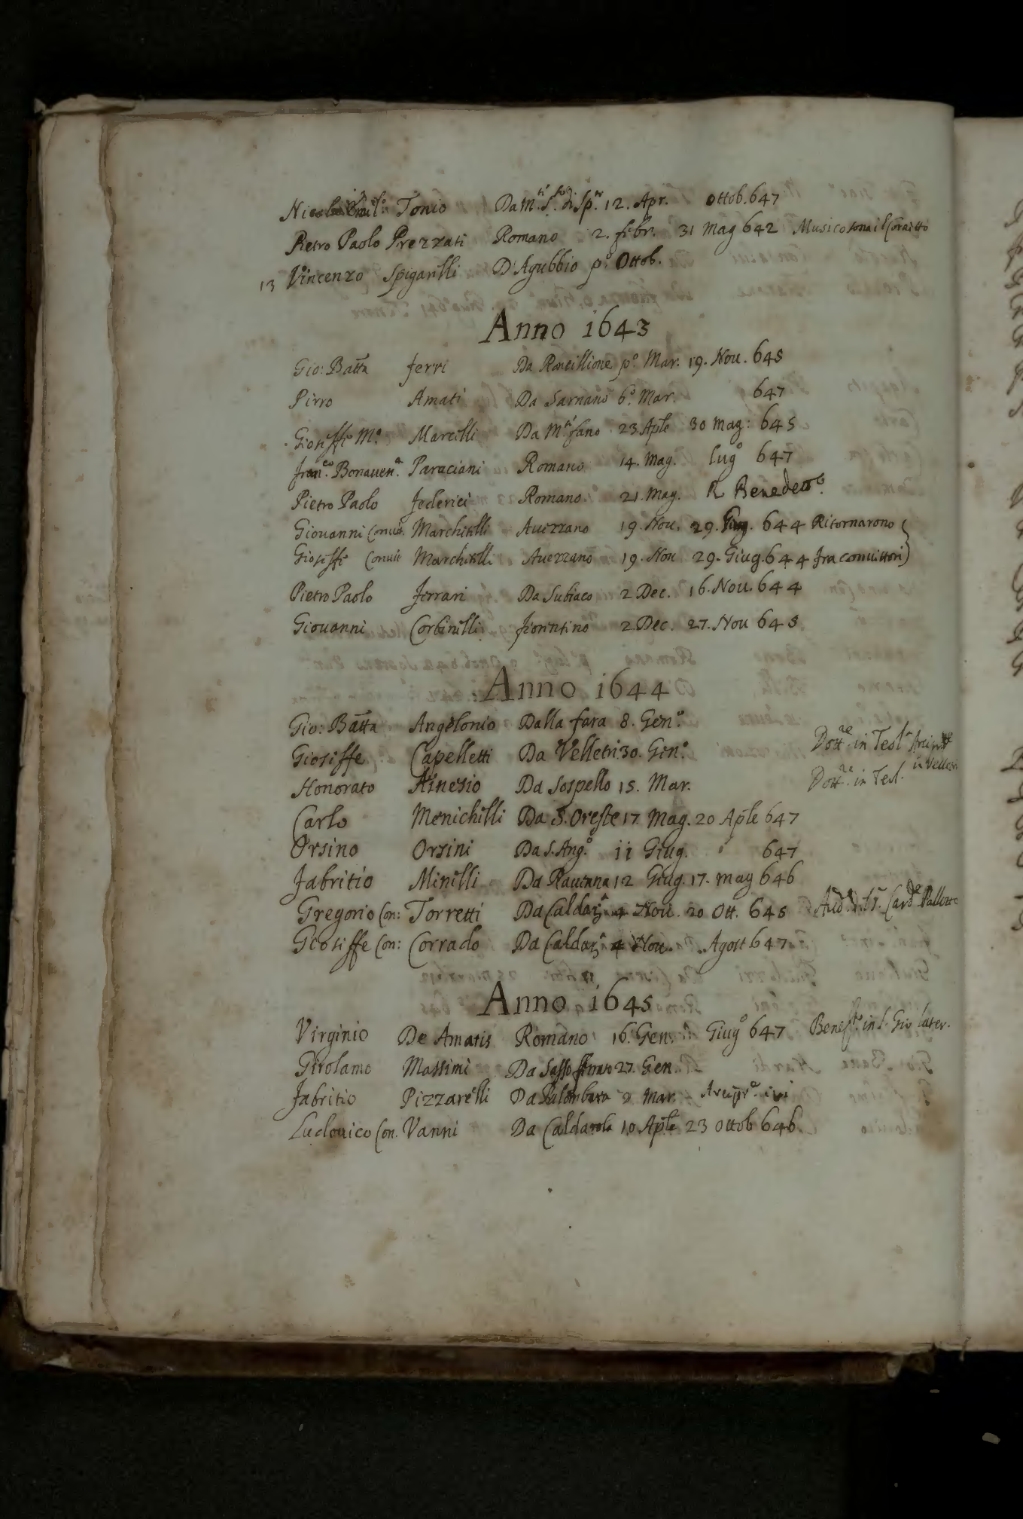 Tonio Da M.ti S.to di Sp. 12. Apr. Ottob. 647
Pietro Paolo Prezzati Romano 2. febr. 31 Mag 642 Musico
13 Vincenzo Spigarilli D'Agubbio p.o Ottob.
Anno 1643
Gio: Batta ferri Da Roncillione p.o Mar. 19. Nou. 645
Pirro Amati Da Sarnano 6.o Mar. 647
Gioseffo M.a Marcelli Da M.te fano 23 Aple 30 Mag: 645
fran.co Bonauen.a Paraciani Romano 14. Mag. lug.o 647
Pietro Paolo federici Romano 21. Mag. R Benedetto.
Giouanni Conuit. Marchitelli Auezzano 19. Nou. 29. Giug. 644 Ritornarono
Gioseffo Conuit Marchitelli Auezzano 19. Nou 29. Giug 644 fra conuittori
Pietro Paolo ferrari Da Subiaco 2 Dec. 16. Nou. 644
Giouanni Corbinelli fiorentino 2 Dec. 27. Nou 645
Anno 1644
Gio: Batta Angelonio Dalla fara 8. Gen.o
Gioseffe Capelletti Da Velletri 30. Gen.o Dott.re in Teol.a
Honorato Da Sospello 15. Mar. Dott.re in Teol.
Carlo Menichilli Da S. Oreste 17 Mag. 20 Aple 647
Orsino Orsini Da S. Ang.o 11 Giug. 647
Fabritio Minilli Da Rauenna 12 Giug. 17. mag 646
Gregorio Con: Torretti Da Caldar.a 4 Nou. 20 Ott. 645 Card.le Pallotto
Gioseffe Con: Corrado Da Caldar.a 4 Nou. Agost 647
Anno 1645
Virginio De Amatis Romano 16 Gen. Giug.o 647 Benef.to in S. Gio later.
Girolamo Massimi Da 27. Gen.
Fabritio Pizzarelli Da Palombara 9 Mar. Arcipr.e iui
Ludouico Con. Vanni Da Caldarola 10 Aple. 23 ottob 646.